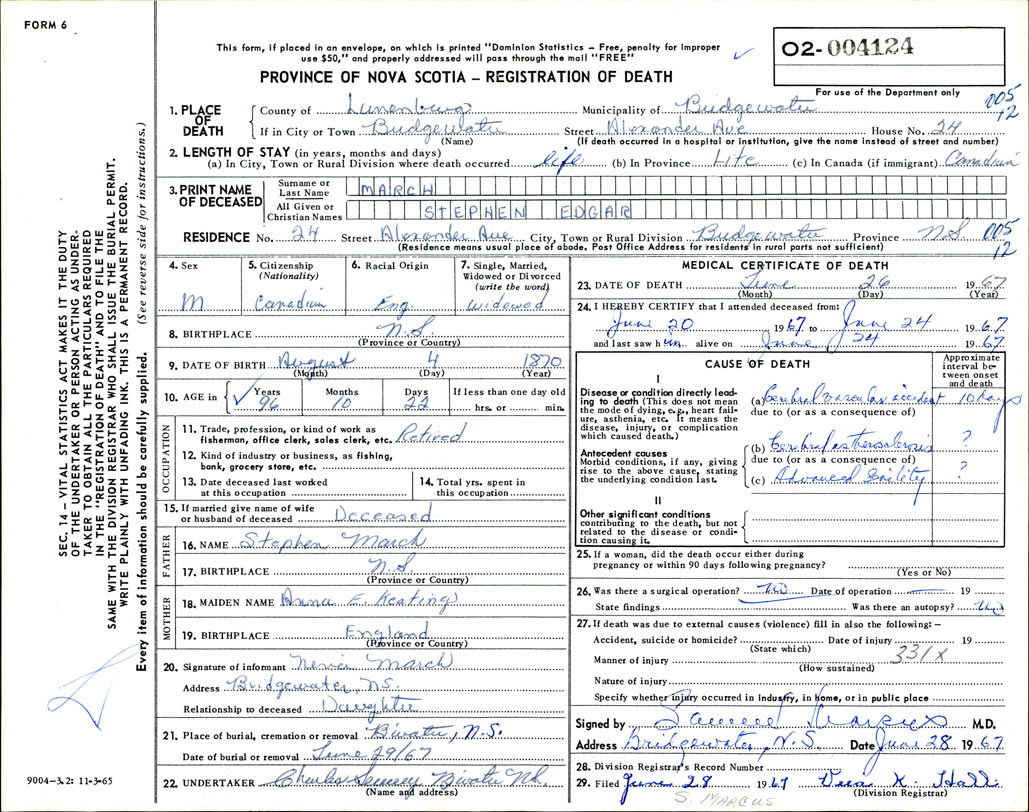 FORM 6
This form, if placed in an envelope, on which is printed "Dominion Statistics - Free, penalty for improper
use $50," and properly addressed will pass through the mail "FREE"
PROVINCE OF NOVA SCOTIA - REGISTRATION OF DEATH
02-004124
For use of the Department only
005
12
1. PLACE OF DEATH
County of Lunenburg Municipality of Bridgewater
If in City or Town Bridgewater Street Alexander Ave House No. 24
(Name) (If death occurred in a hospital or institution, give the name instead of street and number)
2. LENGTH OF STAY (in years, months and days)
(a) In City, Town or Rural Division where death occurred life (b) In Province Life (c) In Canada (if immigrant) Canadian
3. PRINT NAME OF DECEASED
Surname or Last Name MARCH
All Given or Christian Names STEPHEN EDGAR
RESIDENCE No. 24 Street Alexander Ave City, Town or Rural Division Bridgewater Province N.S. 005
12
(Residence means usual place of abode. Post Office Address for residents in rural parts not sufficient)
4. Sex M
5. Citizenship (Nationality) Canadian
6. Racial Origin Eng.
7. Single, Married, Widowed or Divorced (write the word) widowed
8. BIRTHPLACE N.S.
(Province or Country)
9. DATE OF BIRTH August 4 1870
(Month) (Day) (Year)
10. AGE in Years 96 Months 10 Days 22 If less than one day old hrs. or min.
OCCUPATION
11. Trade, profession, or kind of work as
fisherman, office clerk, sales clerk, etc. Retired
12. Kind of industry or business, as fishing,
bank, grocery store, etc.
13. Date deceased last worked
at this occupation
14. Total yrs. spent in
this occupation
15. If married give name of wife
or husband of deceased Deceased
FATHER
16. NAME Stephen March
17. BIRTHPLACE N.S.
(Province or Country)
MOTHER
18. MAIDEN NAME Anna E. Keating
19. BIRTHPLACE England
(Province or Country)
20. Signature of informant March
Address Bridgewater, N.S.
Relationship to deceased Daughter
21. Place of burial, cremation or removal B'water, N.S.
Date of burial or removal June 29/67
22. UNDERTAKER Charles B'water N.S.
(Name and address)
MEDICAL CERTIFICATE OF DEATH
23. DATE OF DEATH June 26 1967
(Month) (Day) (Year)
24. I HEREBY CERTIFY that I attended deceased from:
June 20 1967 to June 24 1967
and last saw him alive on June 24 1967
CAUSE OF DEATH
Approximate interval between onset and death
I
Disease or condition directly leading
to death (This does not mean
the mode of dying, e.g., heart failure,
asthenia, etc. It means the
disease, injury, or complication
which caused death.)
(a) Cerebral vascular accident 10 days
due to (or as a consequence of)
Antecedent causes
Morbid conditions, if any, giving
rise to the above cause, stating
the underlying condition last.
(b) Cerebral astherosclerosis ?
due to (or as a consequence of)
(c) Advanced Senility ?
II
Other significant conditions
contributing to the death, but not
related to the disease or condition
causing it.
25. If a woman, did the death occur either during
pregnancy or within 90 days following pregnancy?
(Yes or No)
26. Was there a surgical operation? No Date of operation 19
State findings Was there an autopsy? No
27. If death was due to external causes (violence) fill in also the following: -
Accident, suicide or homicide? Date of injury 19
(State which)
331X
Manner of injury
(How sustained)
Nature of injury
Specify whether injury occurred in Industry, in Home, or in public place
Signed by Samuel Marcus M.D.
Address Bridgewater, N.S. Date June 28 1967
28. Division Registrar's Record Number
29. Filed June 28 1967 K. Hall
(Division Registrar)
S. MARCUS
SEC. 14 - VITAL STATISTICS ACT MAKES IT THE DUTY
OF THE UNDERTAKER OR PERSON ACTING AS UNDERTAKER
TO OBTAIN ALL THE PARTICULARS REQUIRED
IN THE "REGISTRATION OF DEATH" AND TO FILE THE
SAME WITH THE DIVISION REGISTRAR WHO SHALL ISSUE THE BURIAL PERMIT.
WRITE PLAINLY WITH UNFADING INK. THIS IS A PERMANENT RECORD.
Every item of information should be carefully supplied. (See reverse side for instructions.)
9004-3.2: 11-3-65